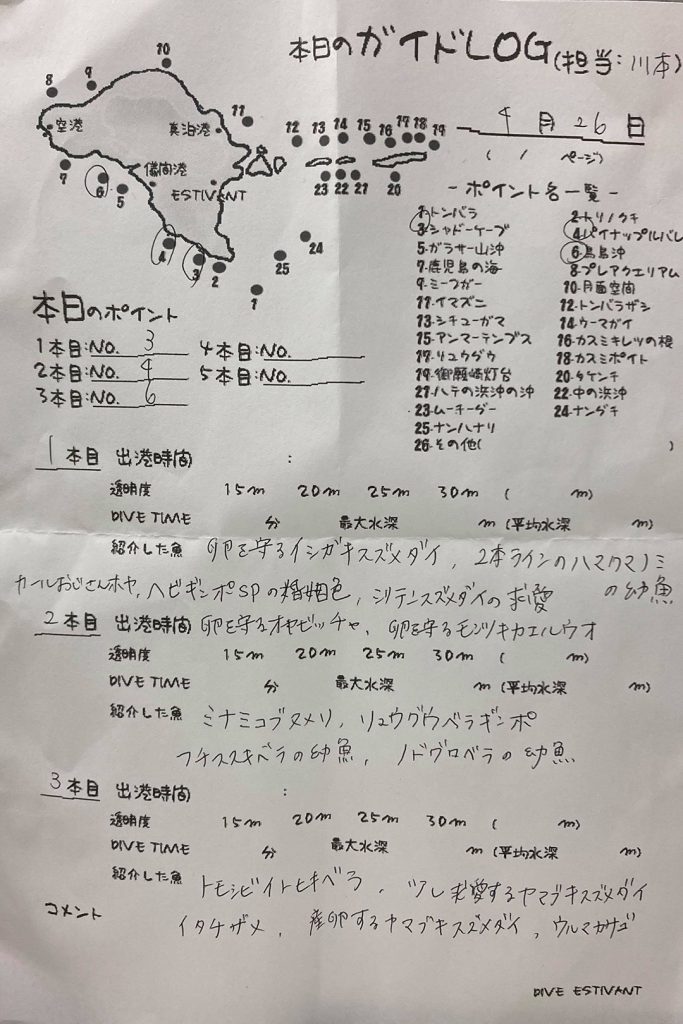 本日のガイドLOG(担当:川本)
4月26日
(1ページ)
10
8 9
空港
真泊港
11
12 13 14 15 16 17 18 19
7 6 5
儀間港
ESTIVANT
23 22 21 20
4 3 2 25 24
1
-ポイント名一覧-
1.トンバラ 2.トリノクチ
3.シャドーケーブ 4.パイナップルバレ
5.ガラサー山沖 6.鳥島沖
7.鹿児島の海 8.プレアクエリアム
9.ミーフガー 10.月面空間
11.イマズニ 12.トンバラザシ
13.シチューガマ 14.ウーマガイ
15.アンマーテンプス 16.カスミキレツの根
17.リュウグウ 18.カスミポイント
19.御願崎灯台 20.タケンチ
21.ハテの浜沖の沖 22.中の浜沖
23.ムーチーグー 24.ナングチ
25.ナンハナリ
26.その他( )
本日のポイント
1本目:NO. 3 4本目:NO.
2本目:NO. 4 5本目:NO.
3本目:NO. 6
1本目 出港時間 :
透明度 15m 20m 25m 30m ( m)
DIVE TIME 分 最大水深 m (平均水深 m)
紹介した魚 卵を守るイシガキスズメダイ、2本ラインのハマクマノミの幼魚
カールおじさんホヤ、ヘビギンポSPの婚姻色、シリテンスズメダイの求愛
2本目 出港時間 卵を守るオヤビッチャ、卵を守るモンツキカエルウオ
透明度 15m 20m 25m 30m ( m)
DIVE TIME 分 最大水深 m (平均水深 m)
紹介した魚 ミナミコブヌメリ、リュウグウベラギンポ
フチススキベラの幼魚、ノドグロベラの幼魚
3本目 出港時間 :
透明度 15m 20m 25m 30m ( m)
DIVE TIME 分 最大水深 m (平均水深 m)
紹介した魚 トモシビイトヒキベラ、ツレ求愛するヤマブキスズメダイ
コメント イタチザメ、産卵するヤマブキスズメダイ、ウルマカサゴ
DIVE ESTIVANT